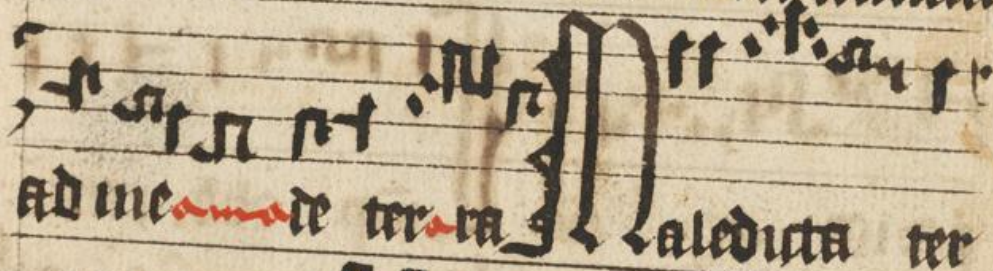 ad me de ter ra Maledicta ter